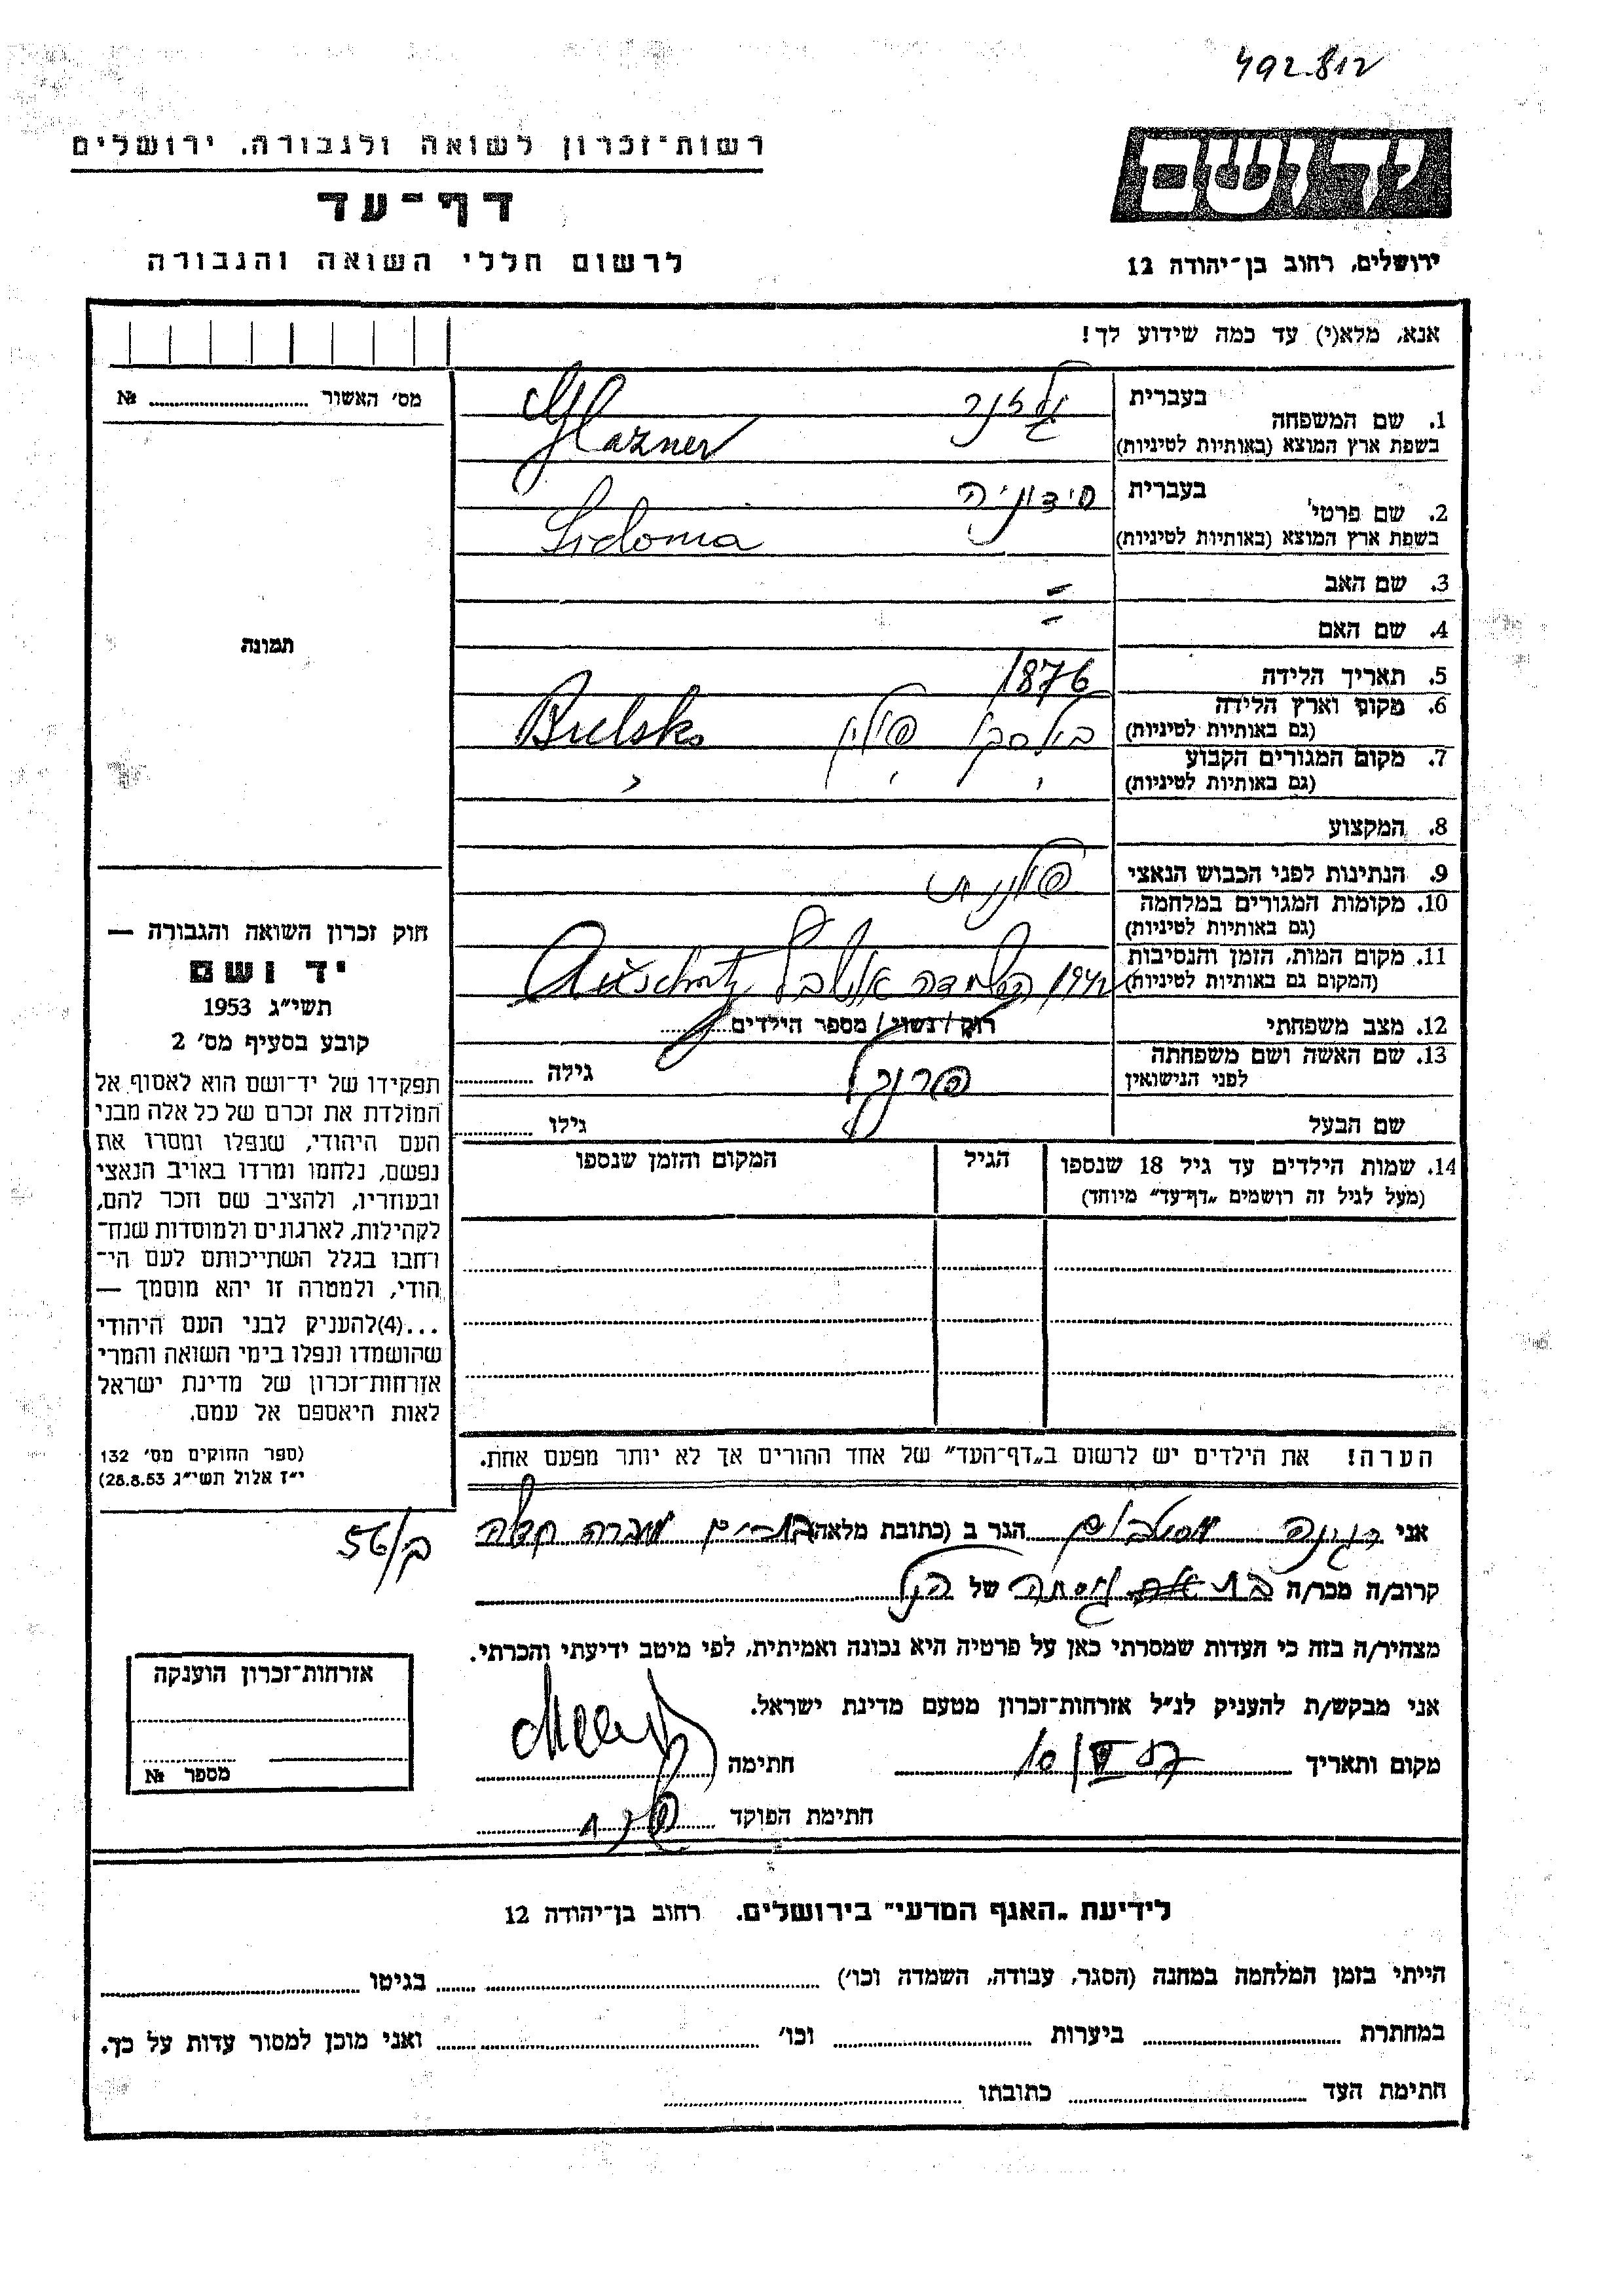 492812
רשות־זכרון לשואה ולגבורה, ירושלים
דף־עד
לרשום חללי השואה והגבורה
יד ושם
ירושלים, רחוב בן־יהודה 12
אנא, מלא(י) עד כמה שידוע לך!
מס׳ האשור № 
1. שם המשפחה
בעברית גלזנר
בשפת ארץ המוצא (באותיות לטיניות) Glazner
2. שם פרטי
בעברית סידוניה
בשפת ארץ המוצא (באותיות לטיניות) Sidonia
3. שם האב -
4. שם האם -
5. תאריך הלידה 1876
6. מקום וארץ הלידה
(גם באותיות לטיניות) בילסקו פולין Bielsko
7. מקום המגורים הקבוע
(גם באותיות לטיניות) " " "
8. המקצוע
9. הנתינות לפני הכבוש הנאצי פולנית
10. מקומות המגורים במלחמה
(גם באותיות לטיניות)
11. מקום המות, הזמן והנסיבות
(המקום גם באותיות לטיניות) 1942 השמדה Auschwitz
12. מצב משפחתי רוק/נשוי/ מספר הילדים
13. שם האשה ושם משפחתה
לפני הנישואין פרנקל גילה
שם הבעל גילו
14. שמות הילדים עד גיל 18 שנספו
(מעל לגיל זה רושמים „דף־עד״ מיוחד)
הגיל
המקום והזמן שנספו
הערה! את הילדים יש לרשום ב„דף־העד״ של אחד ההורים אך לא יותר מפעם אחת.
תמונה
חוק זכרון השואה והגבורה —
יד ושם
תשי״ג 1953
קובע בסעיף מס׳ 2
תפקידו של יד־ושם הוא לאסוף אל
המולדת את זכרם של כל אלה מבני
העם היהודי, שנפלו ומסרו את
נפשם, נלחמו ומרדו באויב הנאצי
ובעוזריו, ולהציב שם וזכר להם,
לקהילות, לארגונים ולמוסדות שנח־
רחבו בגלל השתייכותם לעם הי־
הודי, ולמטרה זו יהא מוסמך —
...(4)להעניק לבני העם היהודי
שהושמדו ונפלו בימי השואה והמרי
אזרחות־זכרון של מדינת ישראל
לאות היאספם אל עמם.
(ספר החוקים מס׳ 132
י״ז אלול תשי״ג 28.8.53)
ב/56
אני רגינה הגר ב (כתובת מלאה)
קרוב/ה מכר/ה בת גיסתה של הנ״ל
מצהיר/ה בזה כי העדות שמסרתי כאן על פרטיה היא נכונה ואמיתית, לפי מיטב ידיעתי והכרתי.
אני מבקש/ת להעניק לנ״ל אזרחות־זכרון מטעם מדינת ישראל.
מקום ותאריך 10/VI חתימה
חתימת הפוקד
אזרחות־זכרון הוענקה
מספר №
לידיעת „האגף המדעי״ בירושלים. רחוב בן־יהודה 12
הייתי בזמן המלחמה במחנה (הסגר, עבודה, השמדה וכו׳) בגיטו
במחתרת ביערות וכו׳ ואני מוכן למסור עדות על כך.
חתימת העד כתובתו